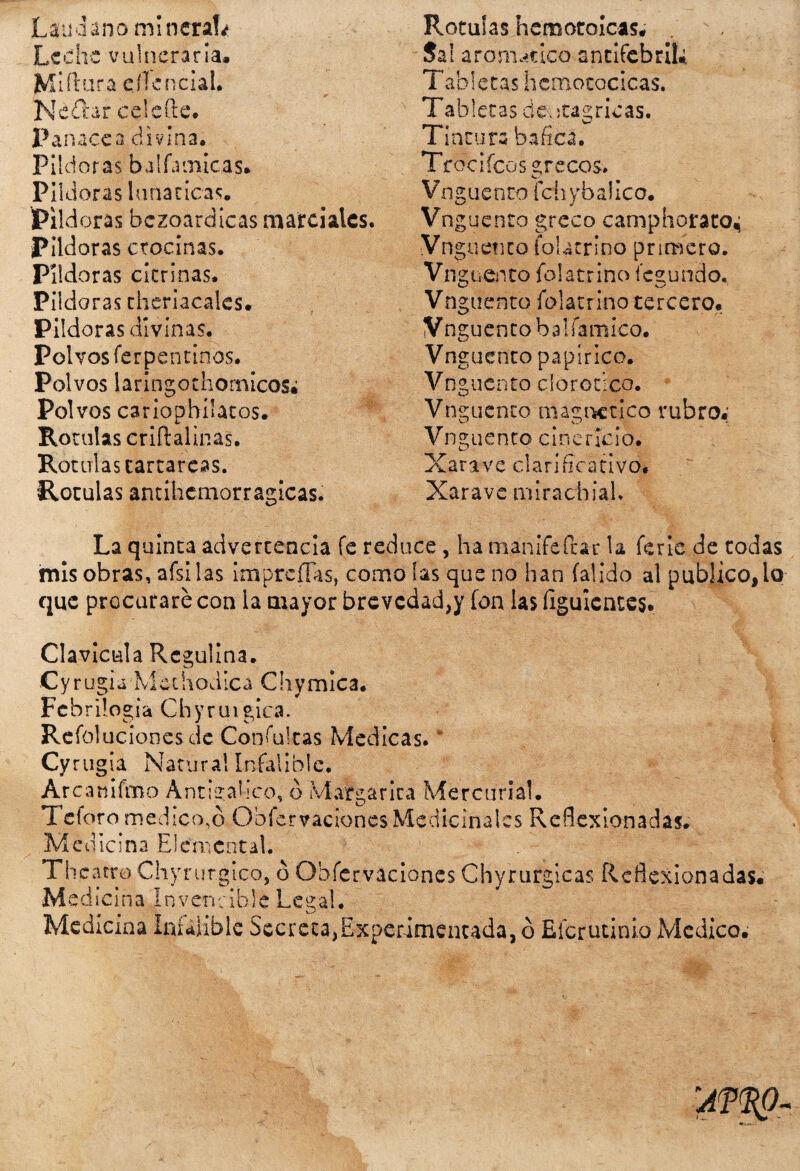 Laudano mineral.
Leche vulneraria.
Miſtura eſſencial.
Nectar celeſte.
Panacea divina.
Pildoras balſamicas.
Pildoras lunaticas.
Pildoras bezoardicas marciales.
Pildoras crocinas.
Pildoras citrinas.
Pildoras theriacales.
Pildoras divinas.
Polvos ſerpentinos.
Polvos laringothomicos.
Polvos cariophilatos.
Rotulas criſtalinas.
Rotulas tartareas.
Rotulas antihemorragicas.
Rotulas hemotoicas.
Sal aromatico antifebril.
Tabletas hemotocicas.
Tabletas dentagricas.
Tintura baſica.
Trociſcos grecos.
Vnguento ſchybalico.
Vnguento greco camphorato.
Vnguento ſolatrino primero.
Vnguento ſolatrino ſegundo.
Vnguento ſolatrino tercero.
Vnguento balſamico.
Vnguento papirico.
Vnguento clorotico.
Vnguento magnetico rubro.
Vnguento cinericio.
Xarave clarificativo.
Xarave mirachial.
La quinta advertencia ſe reduce, ha manifeſtar la ſerie de todas
mis obras, aſsi las impreſſas, como las que no han ſalido al publico, lo
que procurarè con la mayor brevedad, y ſon las ſiguientes.
Clavicula Regulina.
Cyrugia Methodica Chymica.
Febrilogia Chyrurgica.
Reſoluciones de Conſultas Medicas.
Cyrugia Natural Infalible.
Arcaniſmo Antigalico, ò Margarita Mercurial.
Teſoro medico, ò Obſervaciones Medicinales Reflexionadas.
Medicina Elemental.
Theatro Chyrurgico, ò Obſervaciones Chyrurgicas Reflexionadas.
Medicina Invencible Legal.
Medicina Infalible Secreta, Experimentada, ò Eſcrutinio Medico.
APRO-